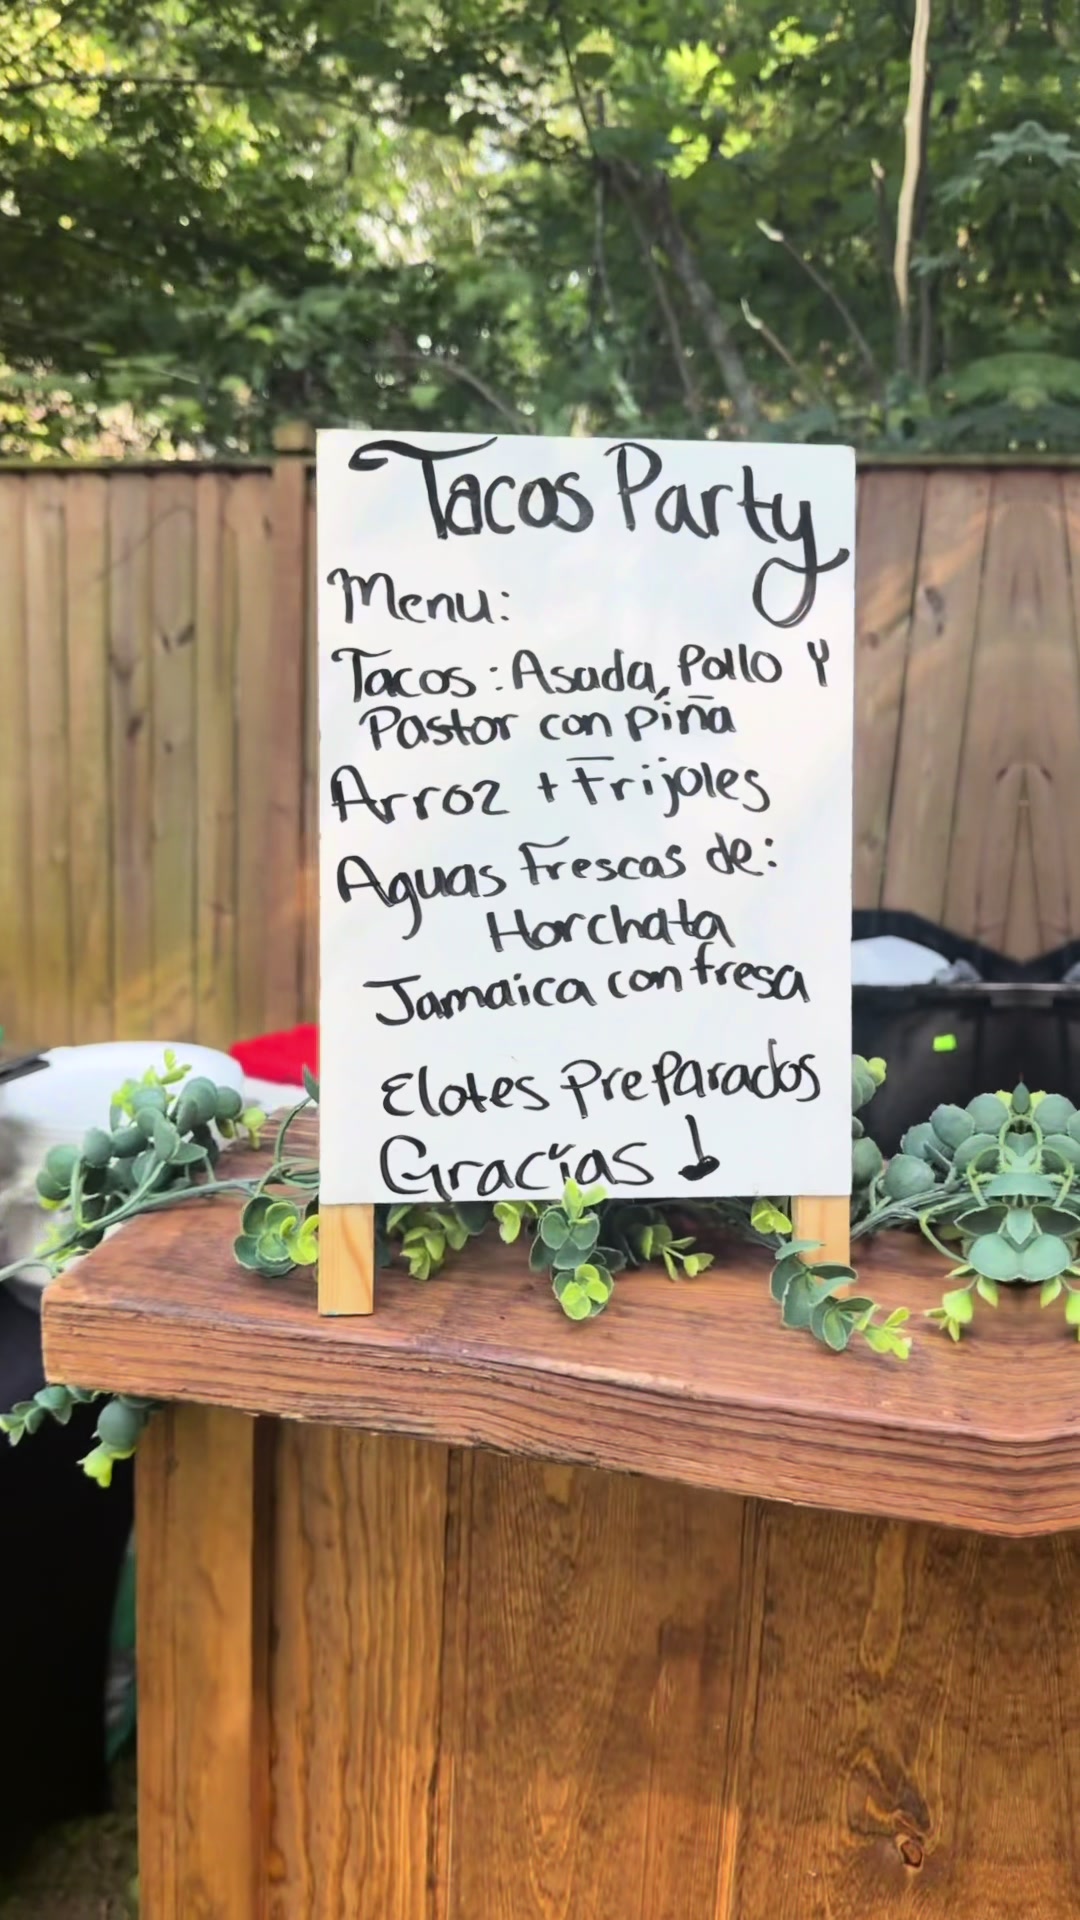 Tacos Party
Menu:
Tacos: Asada, Pollo Y
Pastor con piña
Arroz + Frijoles
Aguas Frescas de:
Horchata
Jamaica con fresa
Elotes preparados
Gracias!